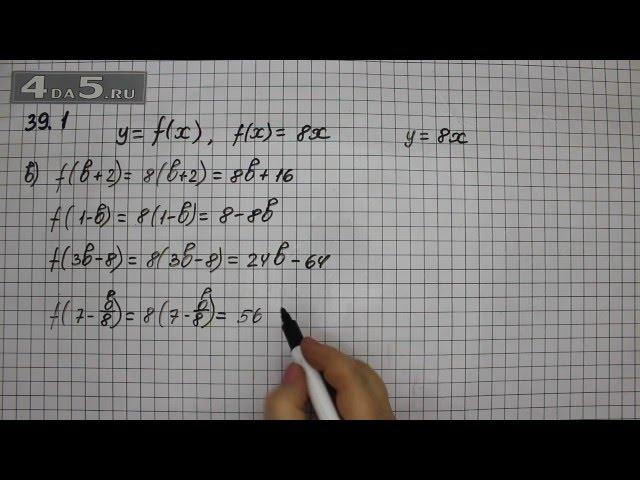 4DA5.RU
39.1
y = f(x), f(x) = 8x    y = 8x
в) f(b+2) = 8(b+2) = 8b + 16
f(1-b) = 8(1-b) = 8 - 8b
f(3b-8) = 8(3b-8) = 24b - 64
f(7 - b/8) = 8(7 - b/8) = 56